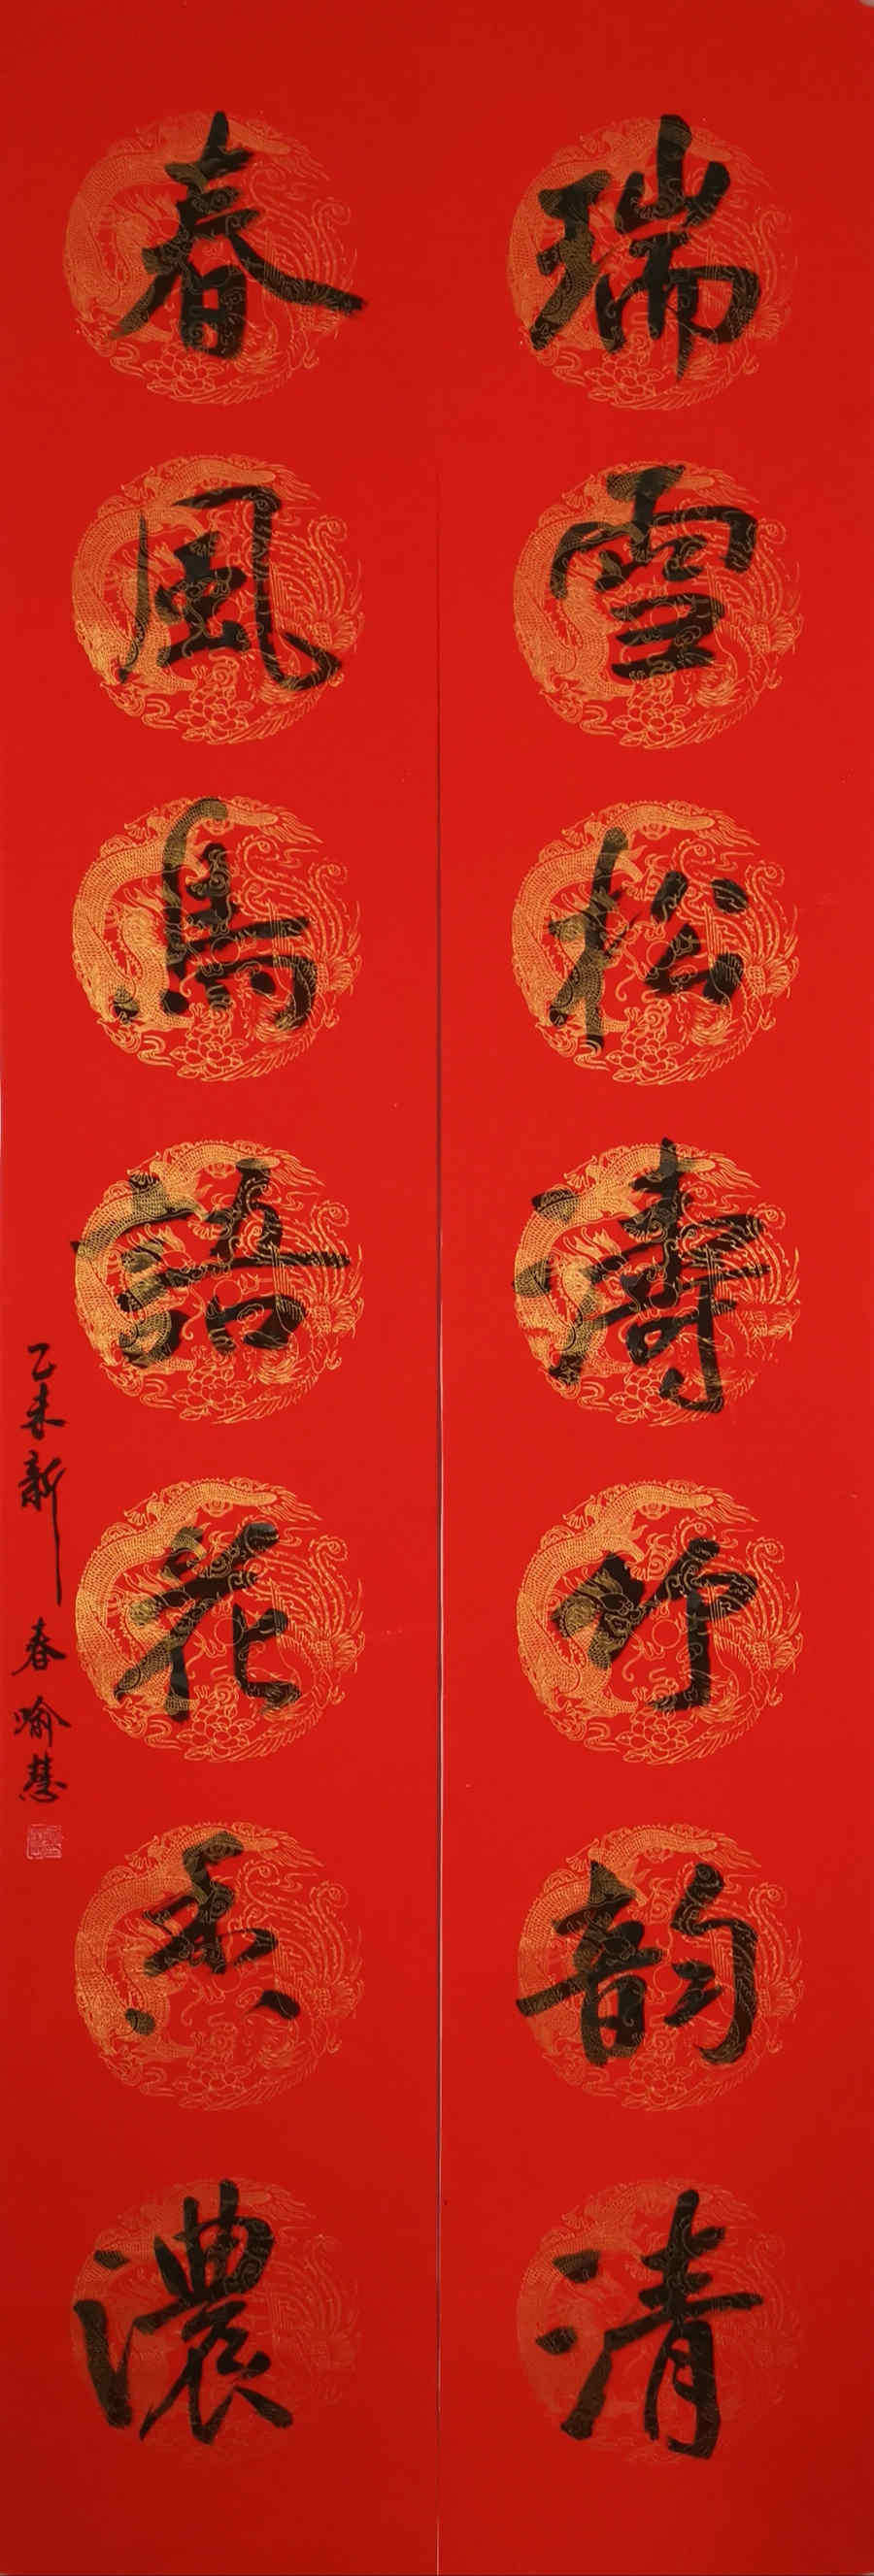 瑞雪松濤竹韵清
春風鳥語花香濃
乙未新春喻慧